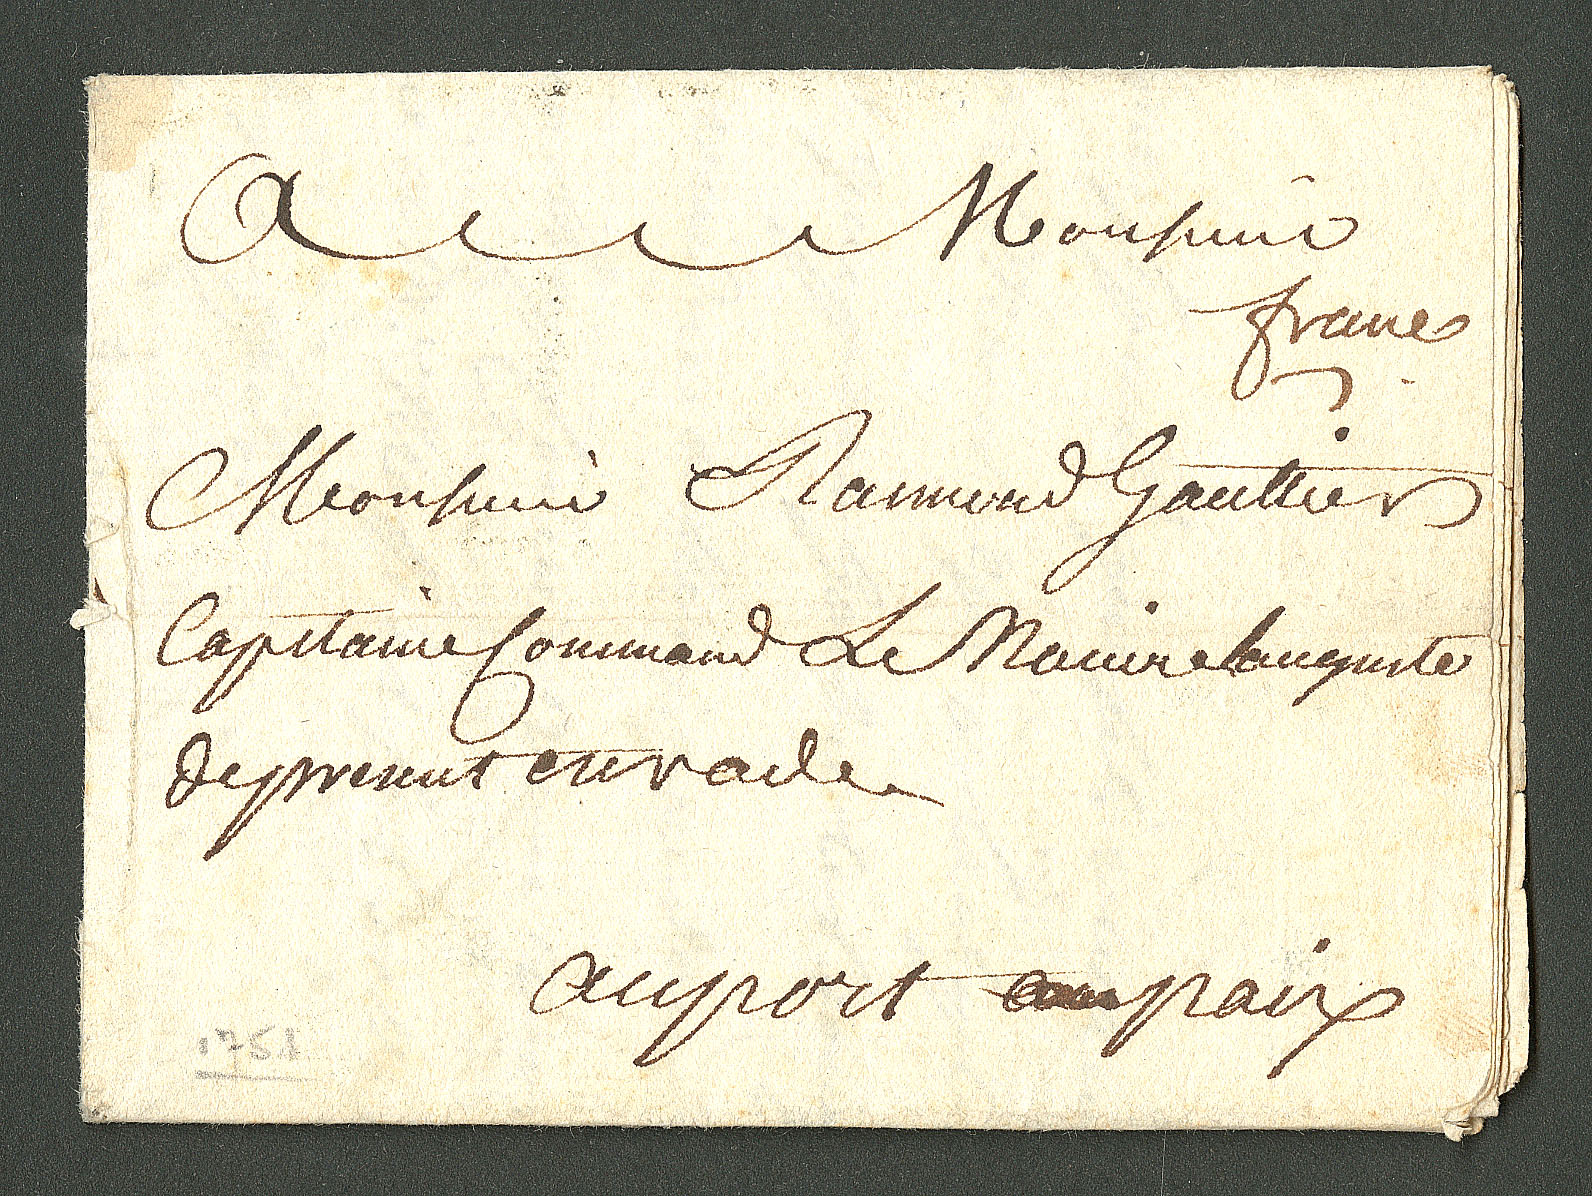 A Monsieur
franc
Monsieur Raimond Gaultier
Capitaine Command Le Navire Lauguste
depresent en rade
au port au paix
1751